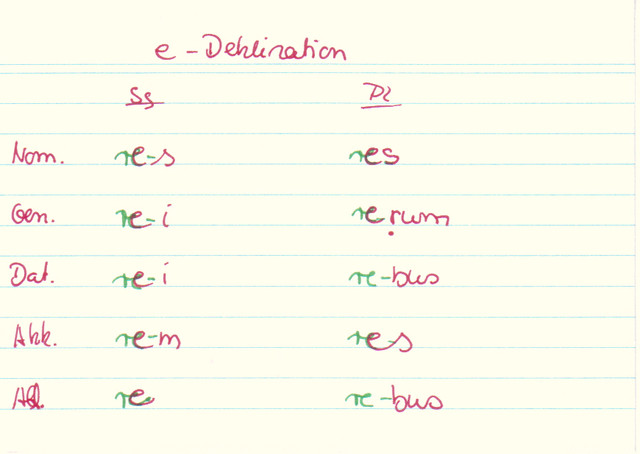 e - Deklination
Sg Pl
Nom. re-s res
Gen. re-i rerum
Dat. re-i re-bus
Akk. re-m re-s
Abl. re re-bus